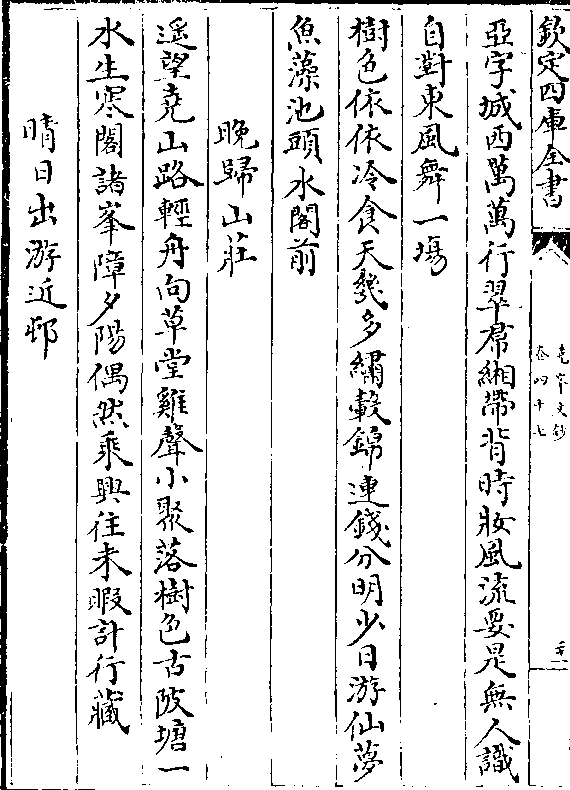 欽定四庫全書
堯峰文鈔
卷四十七
亞字城西萬萬行翠帬緗帶背時妝風流要是無人識
自對東風舞一塲
樹色依依冷食天幾多繡轂錦連錢分明少日游仙夢
魚藻池頭水閣前
晚歸山莊
遥望堯山路輕舟向草堂雞聲小聚落樹色古陂塘一
水生寒閣諸峯障夕陽偶然乘興往未暇計行藏
晴日出游近邨